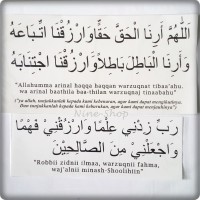 اَللّٰهُمَّ أَرِنَا الْحَقَّ حَقًّا وَارْزُقْنَا اتِّبَاعَهُ
وَأَرِنَا الْبَاطِلَ بَاطِلًا وَارْزُقْنَا اجْتِنَابَهُ
"Allahumma arinal haqqa haqqan warzuqnat tibaa'ahu.
wa arinal baathila baa-thilan warzuqnaj tinaabahu"
("ya allah, tunjukkanlah kepada kami kebenaran, agar kami dapat mengikutinya.
Dan tunjukkanlah kepada kami
Nine Shop
رَبِّ زِدْنِي عِلْمًا وَارْزُقْنِي فَهْمًا
وَاجْعَلْنِي مِنَ الصَّالِحِيْنَ
"Robbii zidnii ilmaa, warzuqnii fahma,
waj'alnii minash-Shoolihiin"